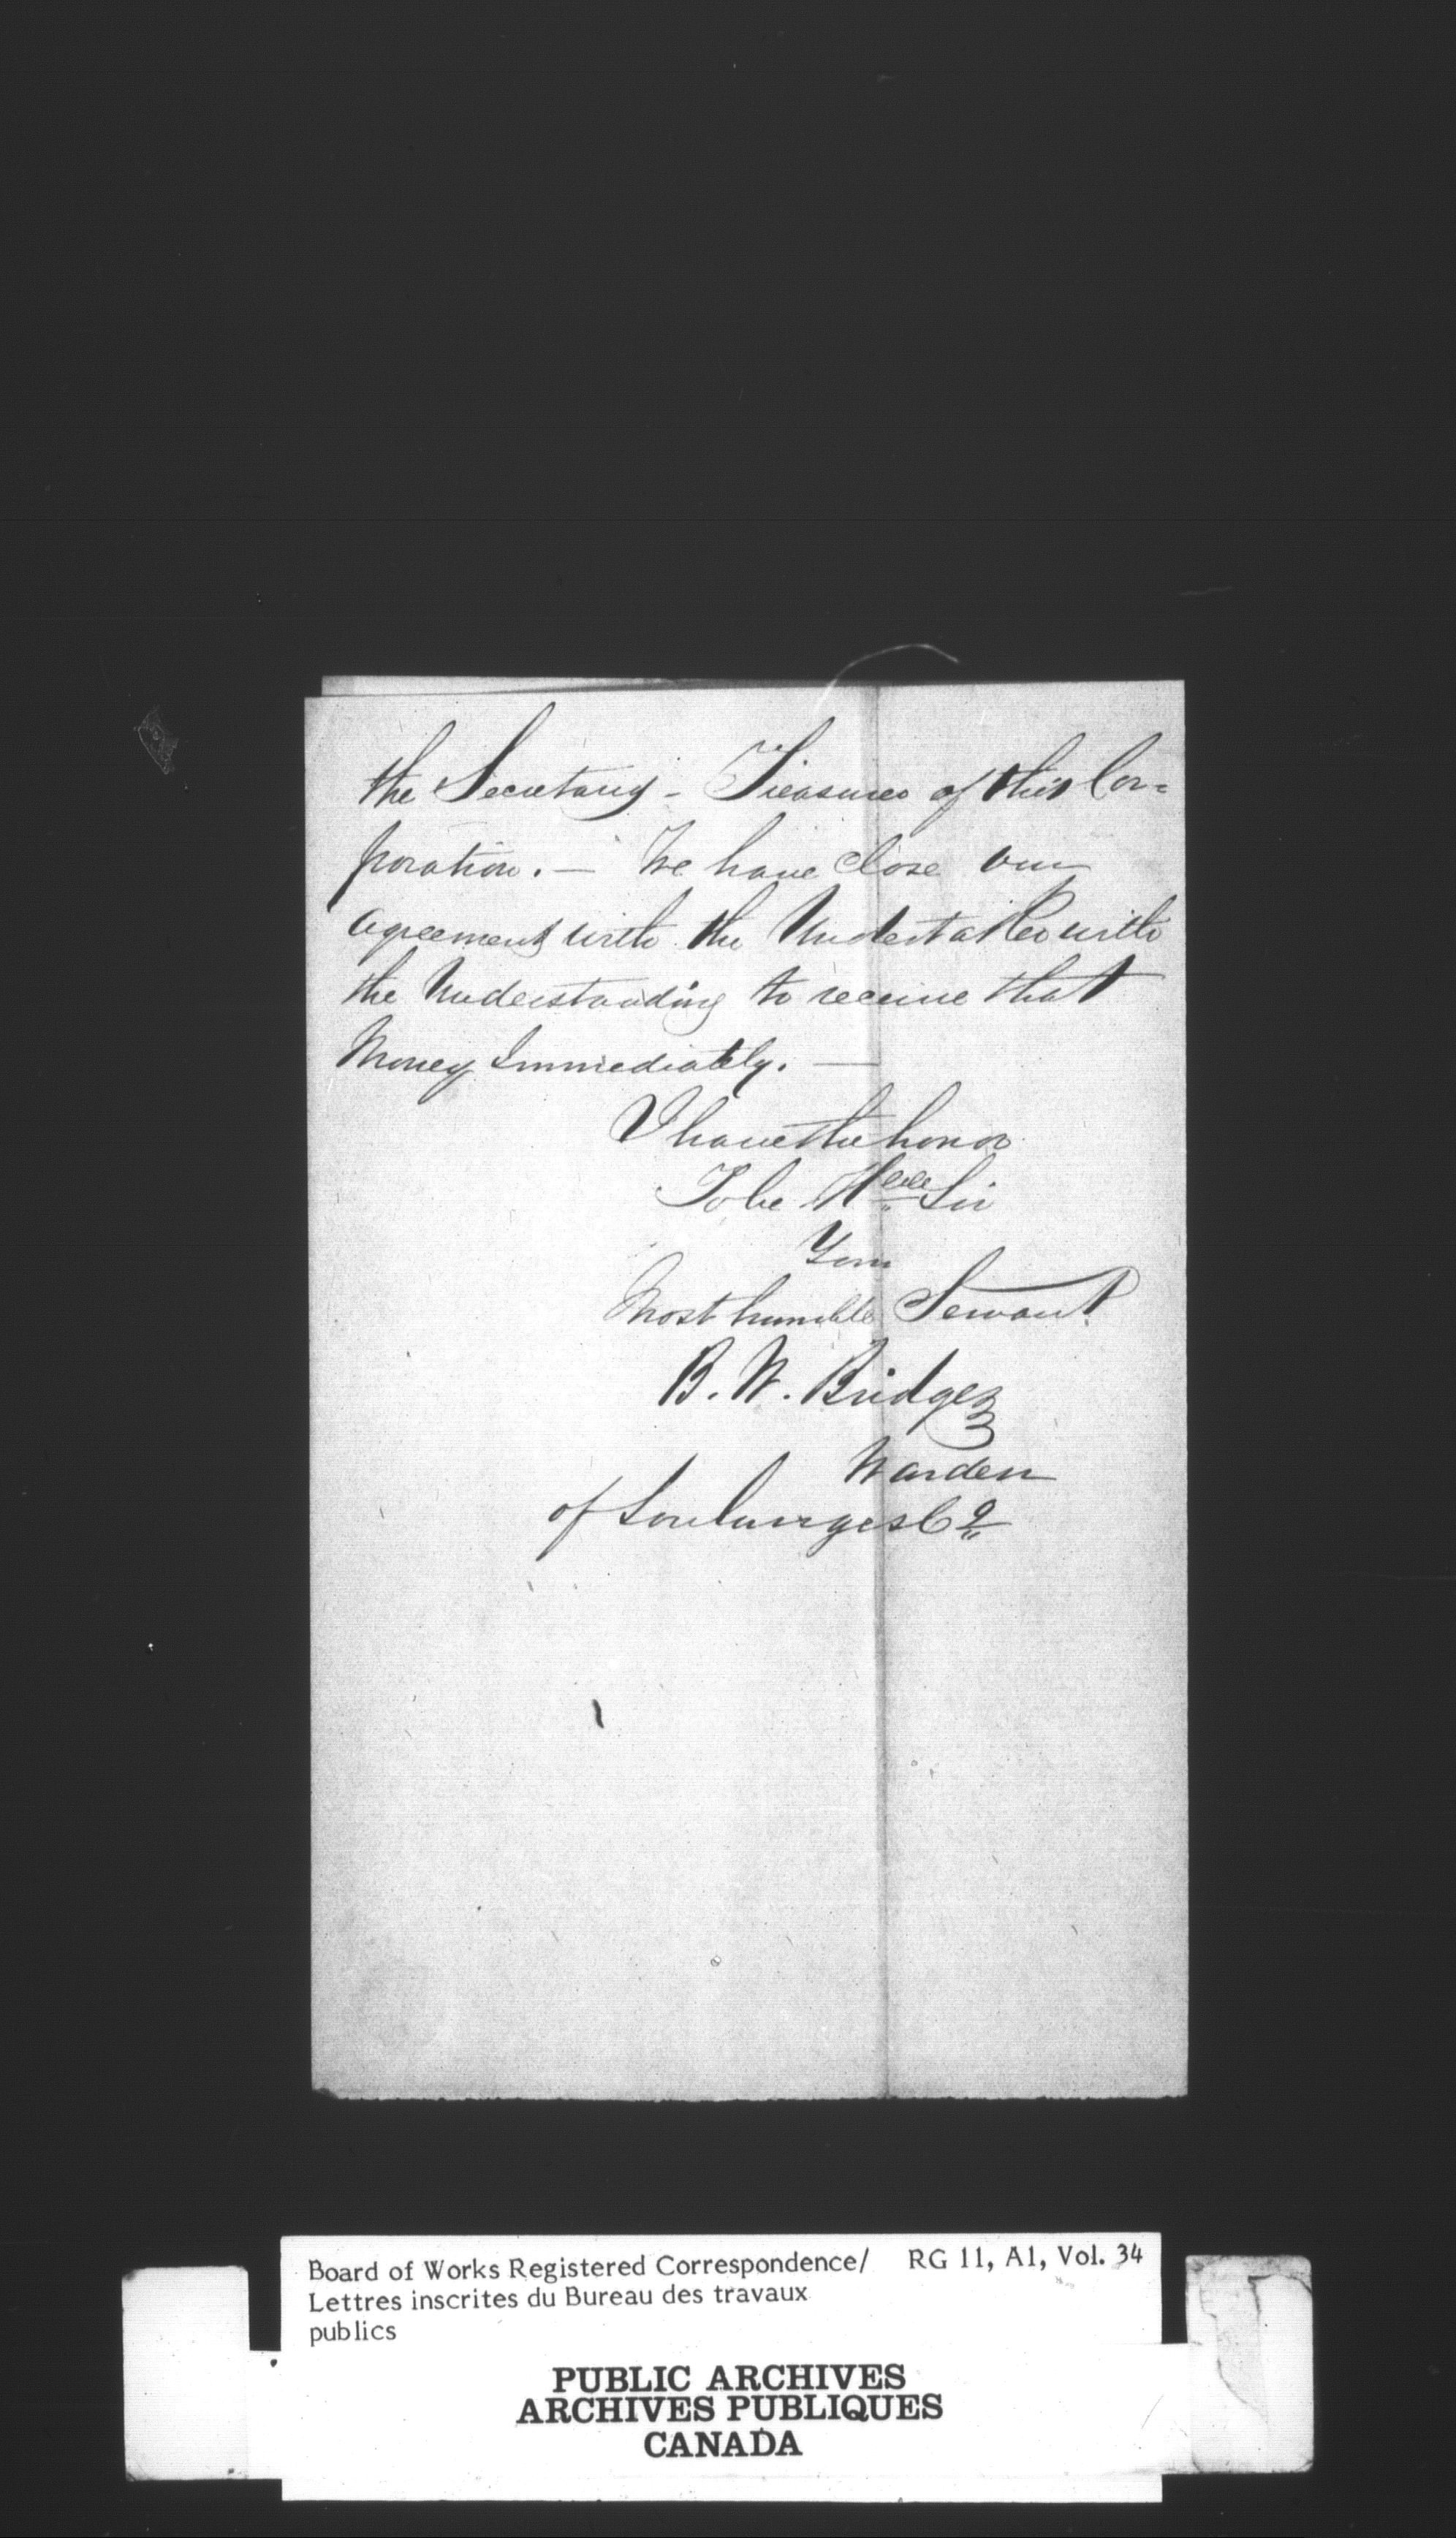 the Secretary - Treasurer of this Cor=
poration. — We have close our
agreement with the Undertaker with
the Understanding to receive that
Money Immediately. —
I have the honor
To be Hble Sir
Your
Most humble Servant
B. W. Bridges
Warden
of Soulanges Co
Board of Works Registered Correspondence/ RG 11, A1, Vol. 34
Lettres inscrites du Bureau des travaux
publics
PUBLIC ARCHIVES
ARCHIVES PUBLIQUES
CANADA